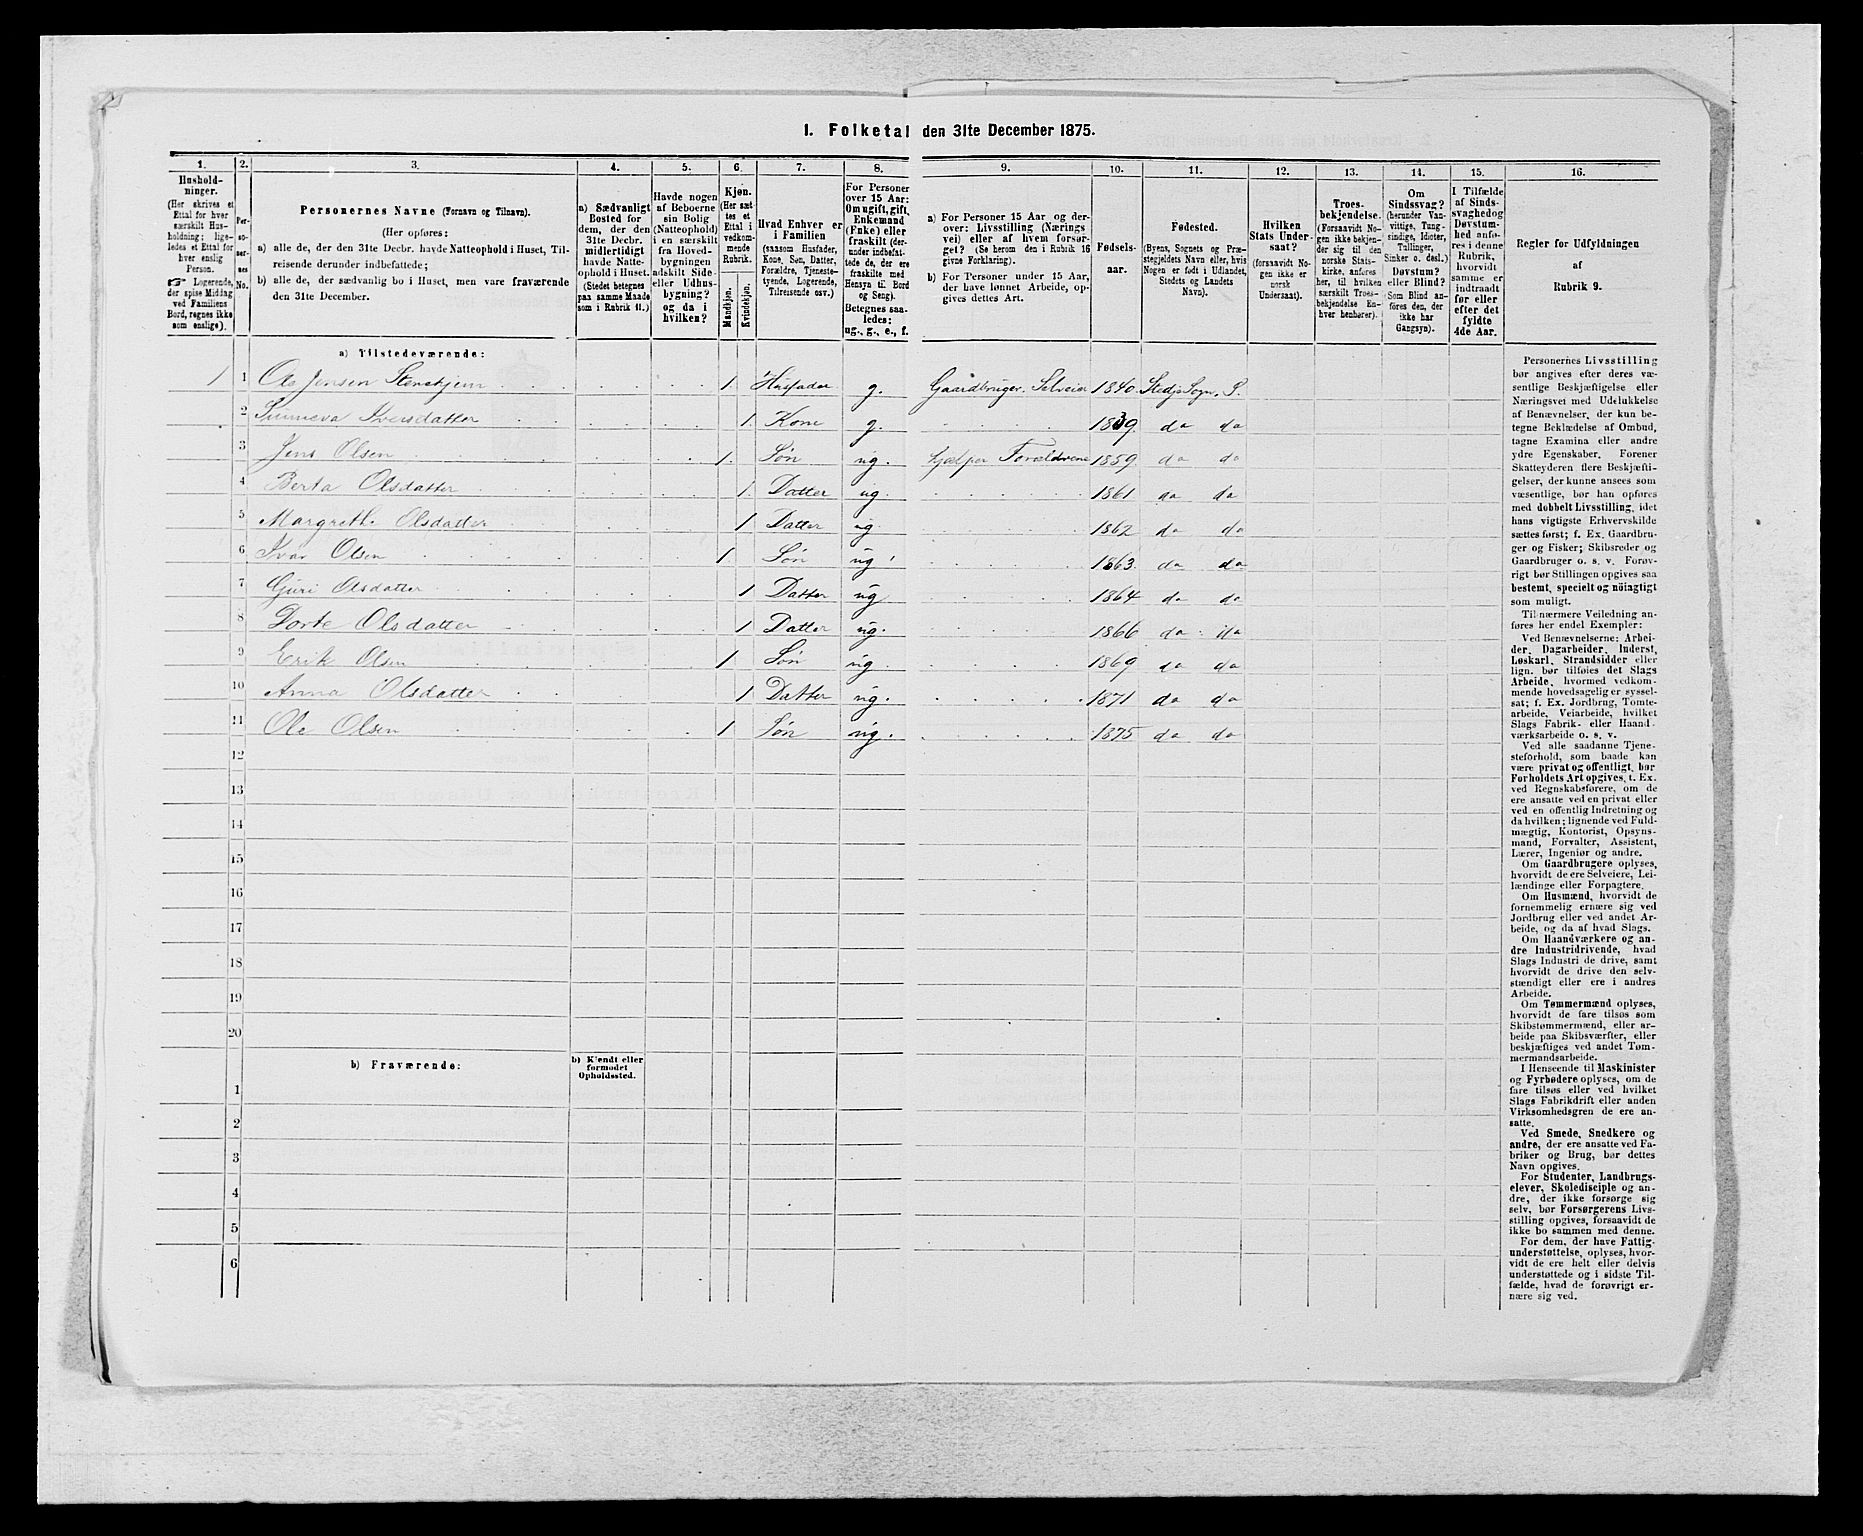 I. Folketal den 31te December 1875.
1. 2. 3. 4. 5. 6. 7. 8. 9. 10. 11. 12. 13. 14. 15. 16.
Husholdninger.
(Her skrives et
Ettal for hver
særskilt Hus-
holdning; lige-
ledes et Ettal for
hver enslig
Person.
☞ Logerende,
der spise Middag
ved Familiens
Bord, regnes ikke
som enslige).
Per-
so-
ner-
nes
No.
Personernes Navne (Fornavn og Tilnavn).
(Her opføres:
a) alle de, der den 31te Decbr. havde Natteophold i Huset, Til-
reisende derunder indbefattede;
b) alle de, der sædvanlig bo i Huset, men vare fraværende
den 31te December.
a) Sædvanligt
Bosted for
dem, der den
31te Decbr.
midlertidigt
havde Natte-
ophold i Huset.
(Stedet betegnes
paa samme Maade
som i Rubrik 11.)
Havde nogen
af Beboerne
sin Bolig
(Natteophold)
i en særskilt
fra Hoved-
bygningen
adskilt Side-
eller Udhus-
bygning?
og da i
hvilken?
Kjøn.
(Her sæt-
tes et
Ettal i
vedkom-
mende
Rubrik.
Mandkjøn.
Kvindekjøn.
Hvad Enhver er
i Familien
(saasom Husfader,
Kone, Søn, Datter,
Forældre, Tjeneste-
tyende, Logerende,
Tilreisende osv.)
For Personer
over 15 Aar:
Om ugift, gift,
Enkemand
(Enke) eller
fraskilt (der-
under indbefat-
tede de, der ere
fraskilte med
Hensyn til Bord
og Seng).
Betegnes saa-
ledes:
ug., g., e., f.
a) For Personer 15 Aar og der-
over: Livsstilling (Nærings
vei) eller af hvem forsør-
get? (Se herom den i Rubrik 16
givne Forklaring).
b) For Personer under 15 Aar,
der have lønnet Arbeide, op-
gives dettes Art.
Fødsels-
aar.
Fødested.
(Byens, Sognets og Præ-
stegjeldets Navn eller, hvis
Nogen er født i Udlandet,
Stedets og Landets
Navn).
Hvilken
Stats Under-
saat?
(forsaavidt No-
gen ikke er
norsk
Undersaat).
Troes-
bekjendelse.
(Forsaavidt No-
gen ikke bekjen-
der sig til den
norske Stats-
kirke, anføres
her, til hvilken
særskilt Troes-
bekjendelse En-
hver henhører).
Om
Sindssvag?
(herunder Van-
vittige, Tung-
sindige, Idioter,
Tullinger,
Sinker o. desl.)
Døvstum?
eller Blind?
(Som Blind an-
føres den, der
ikke har
Gangsyn).
I Tilfælde
af Sinds-
svaghed og
Døvstum-
hed anfø-
res i denne
Rubrik,
hvorvidt
samme er
indtraadt
før eller
efter det
fyldte
4de Aar.
Regler for Udfyldningen
af
Rubrik 9.
a) Tilstedeværende:
1 1 Ole Jensen Stenehjem 1 Husfader g. Gaardbruger, Selveier 1840 Stedje Sogn, P.
2 Sunneva Iversdatter 1 Kone g. 1839 do do
3 Jens Olsen 1 Søn ug. hjælper Forældrene 1859 do do
4 Berta Olsdatter 1 Datter ug. 1861 do do
5 Margreth. Olsdatter 1 Datter ug 1862 do do
6 Ivar Olsen 1 Søn ug 1863 do do
7 Guri Olsdatter 1 Datter ug 1864 do do
8 Dorte Olsdatter 1 Datter ug. 1866 do do
9 Erik Olsen 1 Søn ug 1869 do do
10 Anna Olsdatter 1 Datter ug. 1871 do do
11 Ole Olsen 1 Søn ug. 1875 do do
12
13
14
15
16
17
18
19
20
b) Fraværende:
b) Kjendt eller
formodet
Opholdssted.
1
2
3
4
5
6
Personernes Livsstilling
bør angives efter deres væ-
sentlige Beskjæftigelse eller
Næringsvei med Udelukkelse
af Benævnelser, der kun be-
tegne Beklædelse af Ombud,
tagne Examina eller andre
ydre Egenskaber. Forener
Skatteyderen flere Beskjæfti-
gelser, der kunne ansees som
væsentlige, bør han opføres
med dobbelt Livsstilling, idet
hans vigtigste Erhvervskilde
sættes først; f. Ex. Gaardbru-
ger og Fisker; Skibsreder og
Gaardbruger o. s. v. Forøv-
rigt bør Stillingen opgives saa
bestemt, specielt og nöiagtigt
som muligt.
Til nærmere Veiledning an-
føres her endel Exempler:
Ved Benævnelserne: Arbei-
der, Dagarbeider, Inderst,
Løskarl, Strandsidder eller
lign. bør tilføies det Slags
Arbeide, hvormed vedkom-
mende hovedsagelig er syssel-
sat; f. Ex. Jordbrug, Tomte-
arbeide, Veiarbeide, hvilket
Slags Fabrik- eller Haand-
værksarbeide o. s. v.
Ved alle saadanne Tjene-
steforhold, som baade kan
være privat og offentligt, bør
Forholdets Art opgives, t. Ex.
ved Regnskabsførere, om de
ere ansatte ved en privat eller
ved en offentlig Indretning og
da hvilken; lignende ved Fuld-
mægtig, Kontorist, Opsyns-
mand, Forvalter, Assistent,
Lærer, Ingeniør og andre.
Om Gaardbrugere oplyses,
hvorvidt de ere Selveiere, Lei-
lændinge eller Forpagtere.
Om Husmænd, hvorvidt de
fornemmelig ernære sig ved
Jordbrug eller ved andet Ar-
beide, og da af hvad Slags.
Om Haandværkere og an-
dre Industridrivende, hvad
Slags Industri de drive, samt
hvorvidt de drive den selv-
stændigt eller ere i andres
Arbeide.
Om Tømmermænd oplyses,
hvorvidt de fare tilsøs som
Skibstømmermænd, eller ar-
beide paa Skibsværfter, eller
beskjæftiges ved andet Tøm-
mermandsarbeide.
I Henseende til Maskinister
og Fyrbødere oplyses, om de
fare tilsøs eller ved hvilket
Slags Fabrikdrift eller anden
Virksomhedsgren de ere an-
satte.
Ved Smede, Snedkere og
andre, der ere ansatte ved Fa-
briker og Brug, bør dettes
Navn opgives.
For Studenter, Landbrugs-
elever, Skoledisciple og an-
dre, der ikke forsørge sig
selv, bør Forsørgerens Livs-
stilling opgives, forsaavidt de
ikke bo sammen med denne.
For dem, der have Fattig-
understøttelse, oplyses, hvor-
vidt de ere helt eller delvis
understøttede og i sidste Til-
fælde, hvad de forøvrigt er-
nære sig ved.